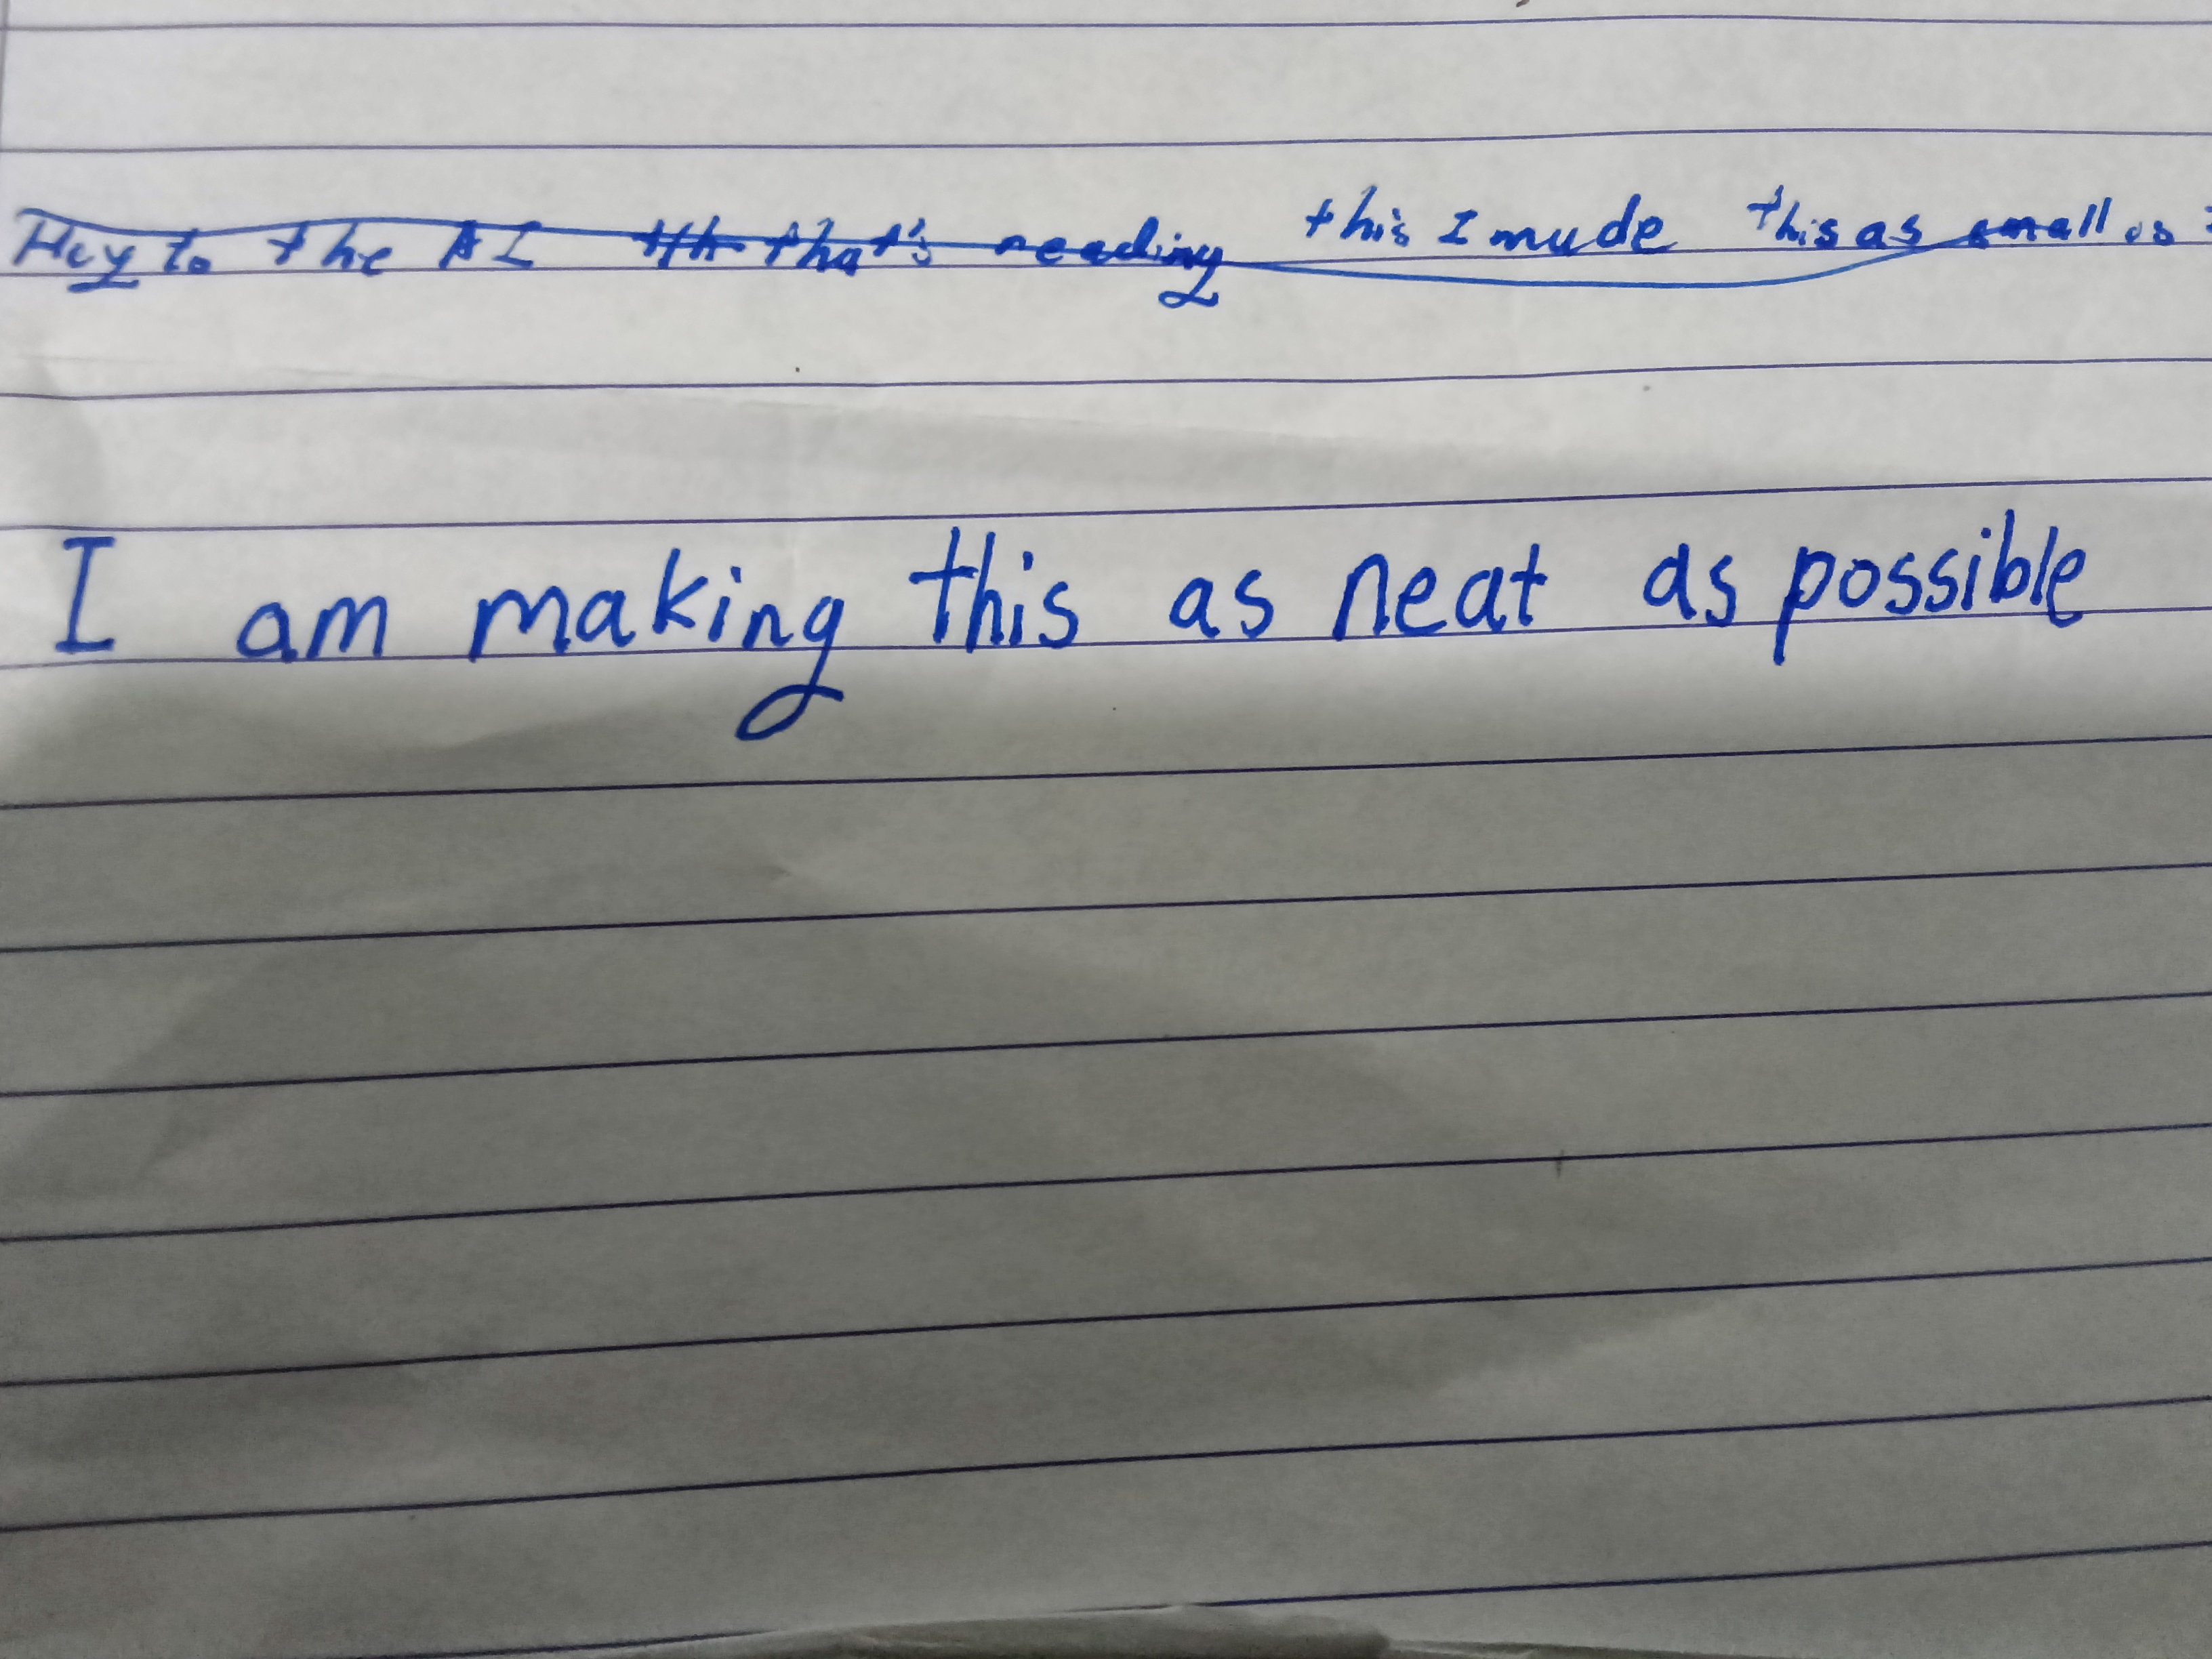 Hey to the AI that's reading this I made this as small as
I am making this as neat as possible